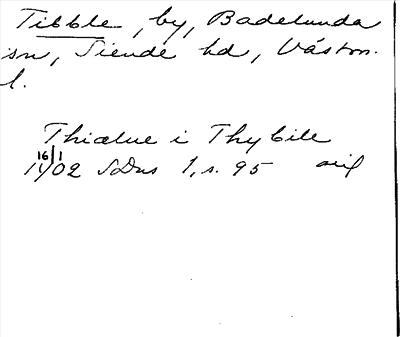 Tibble, by, Badelunda
sn, Siende hd, Västm.
l.
Thialue i Thybile
16/1
1402 SDns 1, s. 95 orig